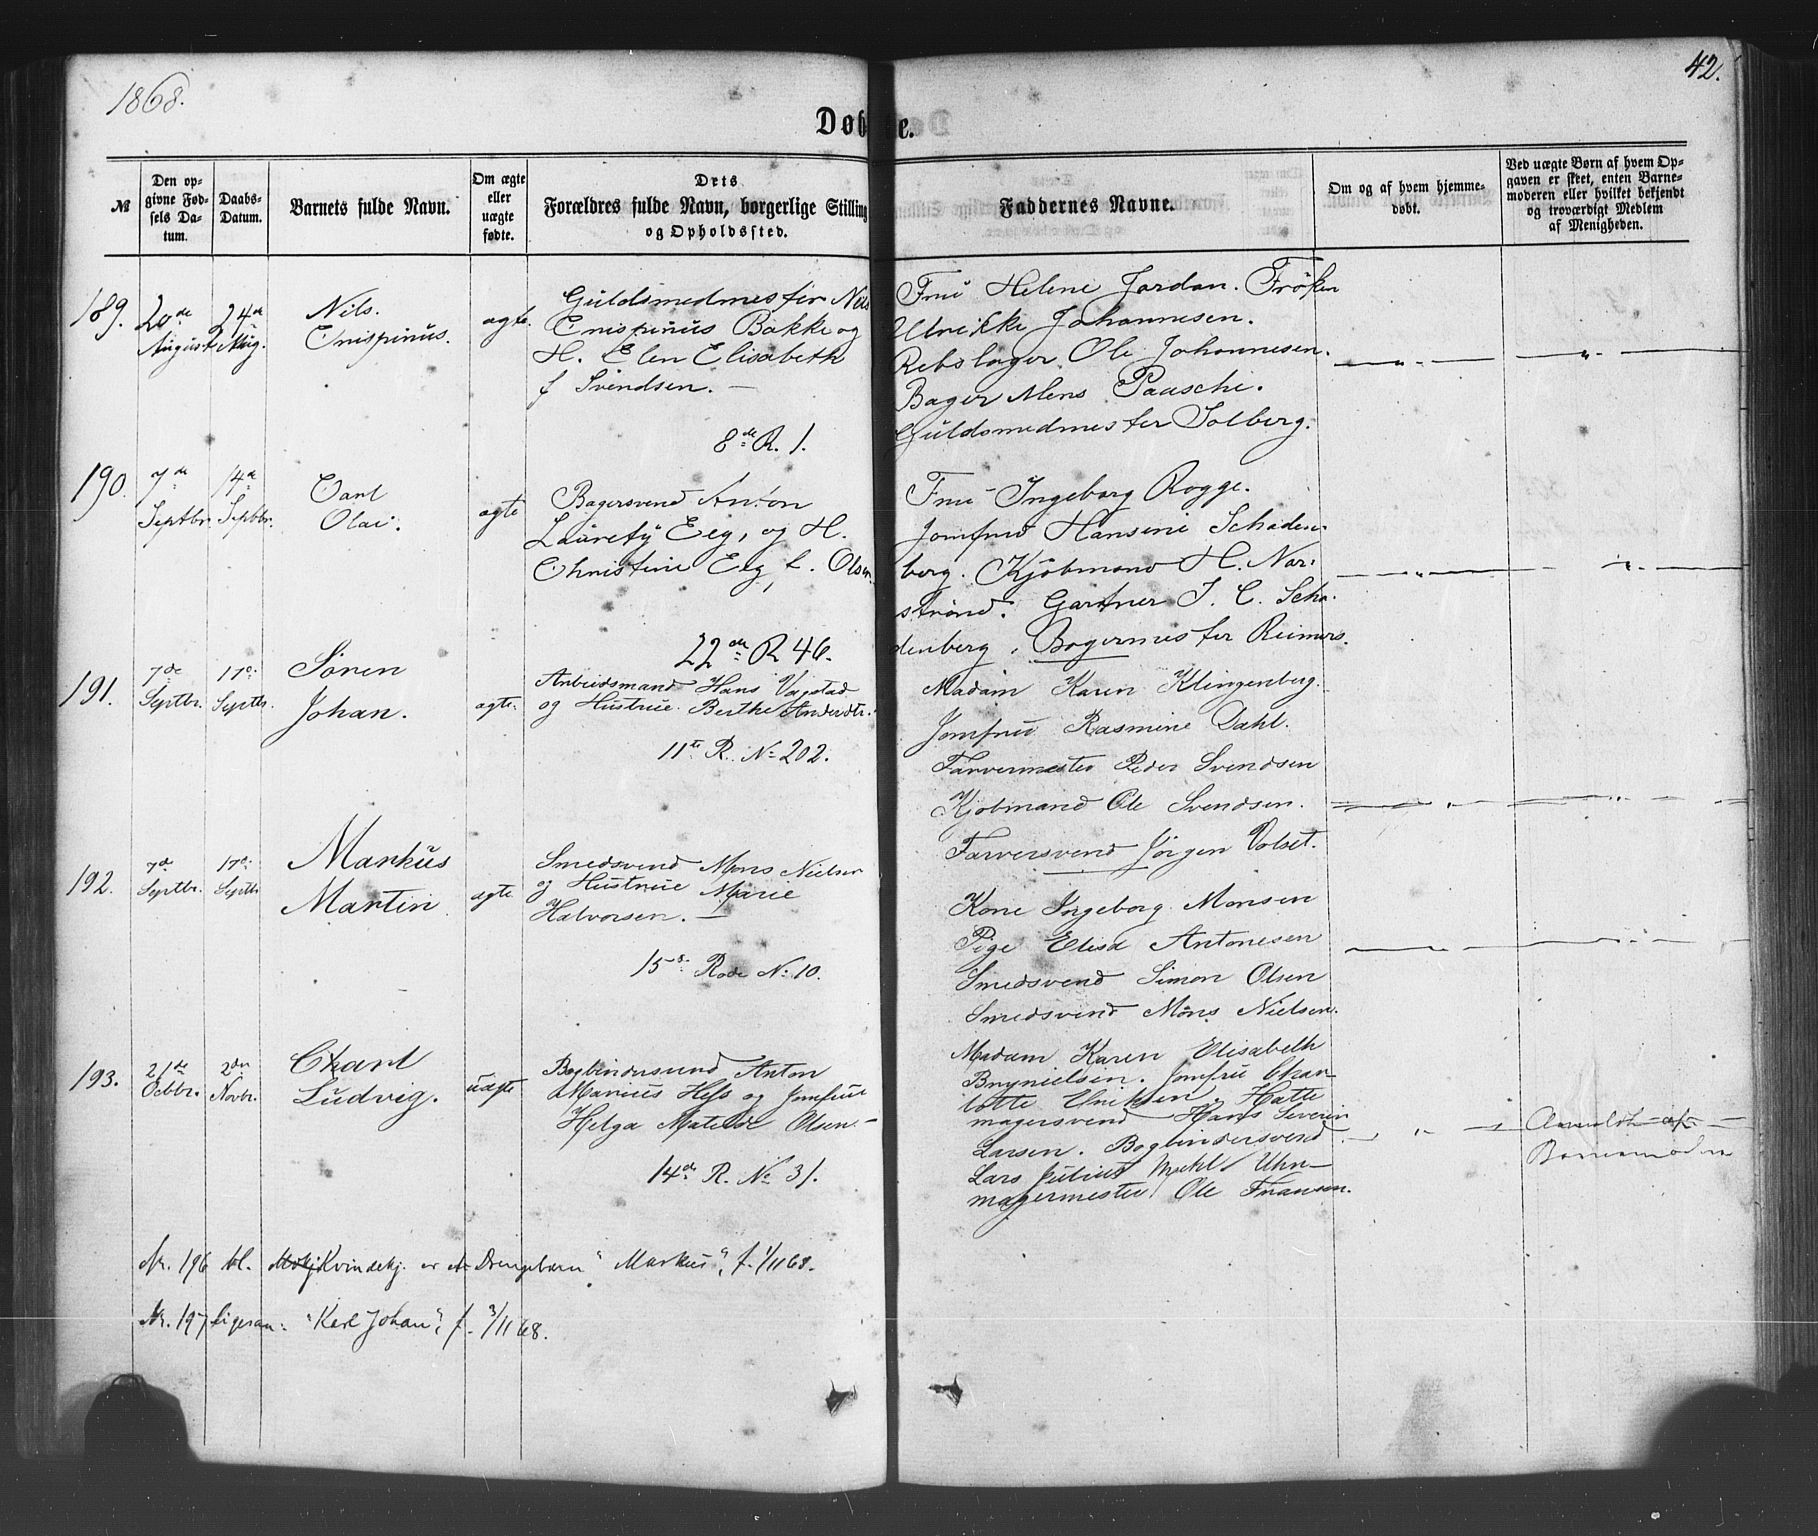 1868.
42.
Døbte.
№
Den opgivne Fødsels Datum.
Daabs-Datum.
Barnets fulde Navn.
Om ægte eller uægte fødte.
Dets Forældres fulde Navn, borgerlige Stilling og Opholdssted.
Faddernes Navne.
Om og af hvem hjemmedøbt.
Ved uægte Børn af hvem Opgaven er skeet, enten Barnemoderen eller hvilket bekjendt og troværdigt Medlem af Menigheden.
189.
20de August
24de Aug.
Nils.
Crispinus.
ægte.
Guldsmedmester Nils
Crispinus Bakke og
H. Elen Elisabeth
f Svendsen. —
8de R. 1.
Frue Helene Jordan. Frøken
Ulrikke Johannesen.
Rebslager Ole Johannesen.
Bager Mens Paasche.
Guldsmedmester Solberg.
190.
7de Septbr.
14de Septbr.
Carl
Olai.
ægte
Bagersvend Anton
Lauretz Eeg, og H.
Christine Eeg, f. Olsen
22de R 46.
Frue Ingeborg Rogge.
Jomfrue Hansine Schaden-
berg. Kjøbmand H. Nor-
strand. Gartner J. C. Scha-
denberg, Bagermester Reimers.
191.
7de Septbr.
17de Septbr.
Søren
Johan.
ægte.
Arbeidsmand Hans Vagstad
og Hustrue. Berthe Andersdtr.
11te R. No 202.
Madam Karen Klingenberg.
Jomfrue Rasmine Dahl.
Farvermester Peder Svendsen
Kjøbmand Ole Svendsen.
Farversvend Jørgen Volset.
192.
7de Septbr.
17de Septbr
Markus
Martin
ægte.
Smedsvend Mons Nielsen
og Hustrue Marie
Halvorsen. —
15de Rode No 10.
Kone Ingeborg Monsen
Pige Elisa Antonesen
Smedsvend Simon Olsen
Smedsvend Mons Nielsen.
193.
21de Octbr.
2den Novbr.
Charl
Ludvig.
uægte
Bogbindersvend Anton
Marius Hess og Jomfrue
Helga Matelde Olsen. —
14de R. No 31.
Madam Karen Elisabeth
Brynielsen. Jomfru Char-
lotte Eriksen. Hatte
magersvend Hans Severin
Larsen. Bogbindersvend
Lars Julius Mehl Uhr-
magermester Ole Fransen.
Anmeldt af
Barnemoderen
Nr. 196 bl. Kvindekj. er et Drengebarn "Markus", f. 1/11 68.
Nr. 197 ligesaa: "Karl Johan", f. 3/11 68.